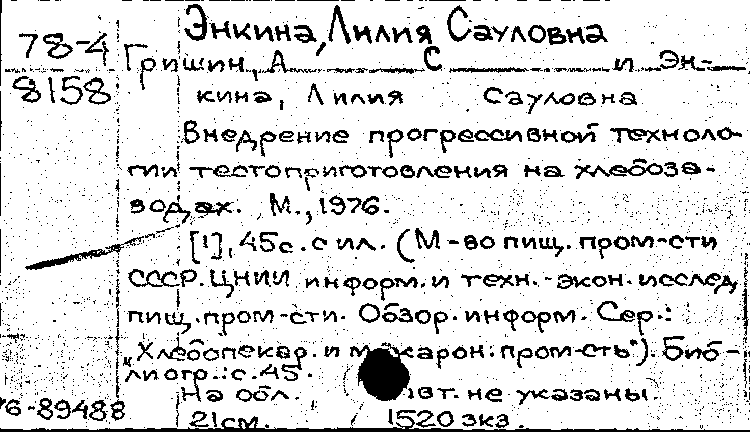 Энкина, Лилия Сауловна
78-4
Гришин, А С и Эн-
8158
кина, Лилия Сауловна
Внедрение прогрессивной техноло-
гии тестоприготовления на хлебоза-
водах. М., 1976.
[1], 45с. с ил. (М-во пищ. пром-сти
СССР. ЦНИИ информ. и техн.-экон. исслед.
пищ. пром-сти. Обзор. информ. Сер.:
„Хлебопекар. и макарон. пром-сть"). Биб-
лиогр.: с. 45.
На обл. авт. не указаны.
76-89488
21см. 1520 экз.